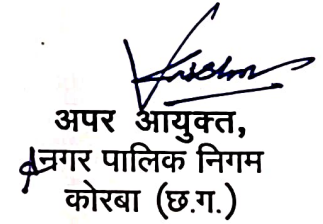 अपर आयुक्त,
नगर पालिक निगम
कोरबा (छ.ग.)